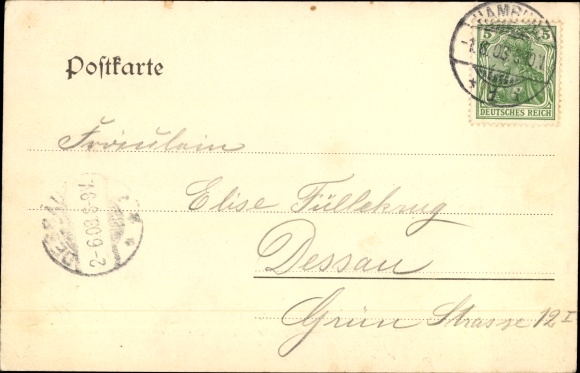 Postkarte
HAMBURG
-1.6.03
5 5
DEUTSCHES REICH
Fräulein
Elise Füllekrug
Dessau
Grün Strasse 12 I
DESSAU
2-6.03.8-9V.